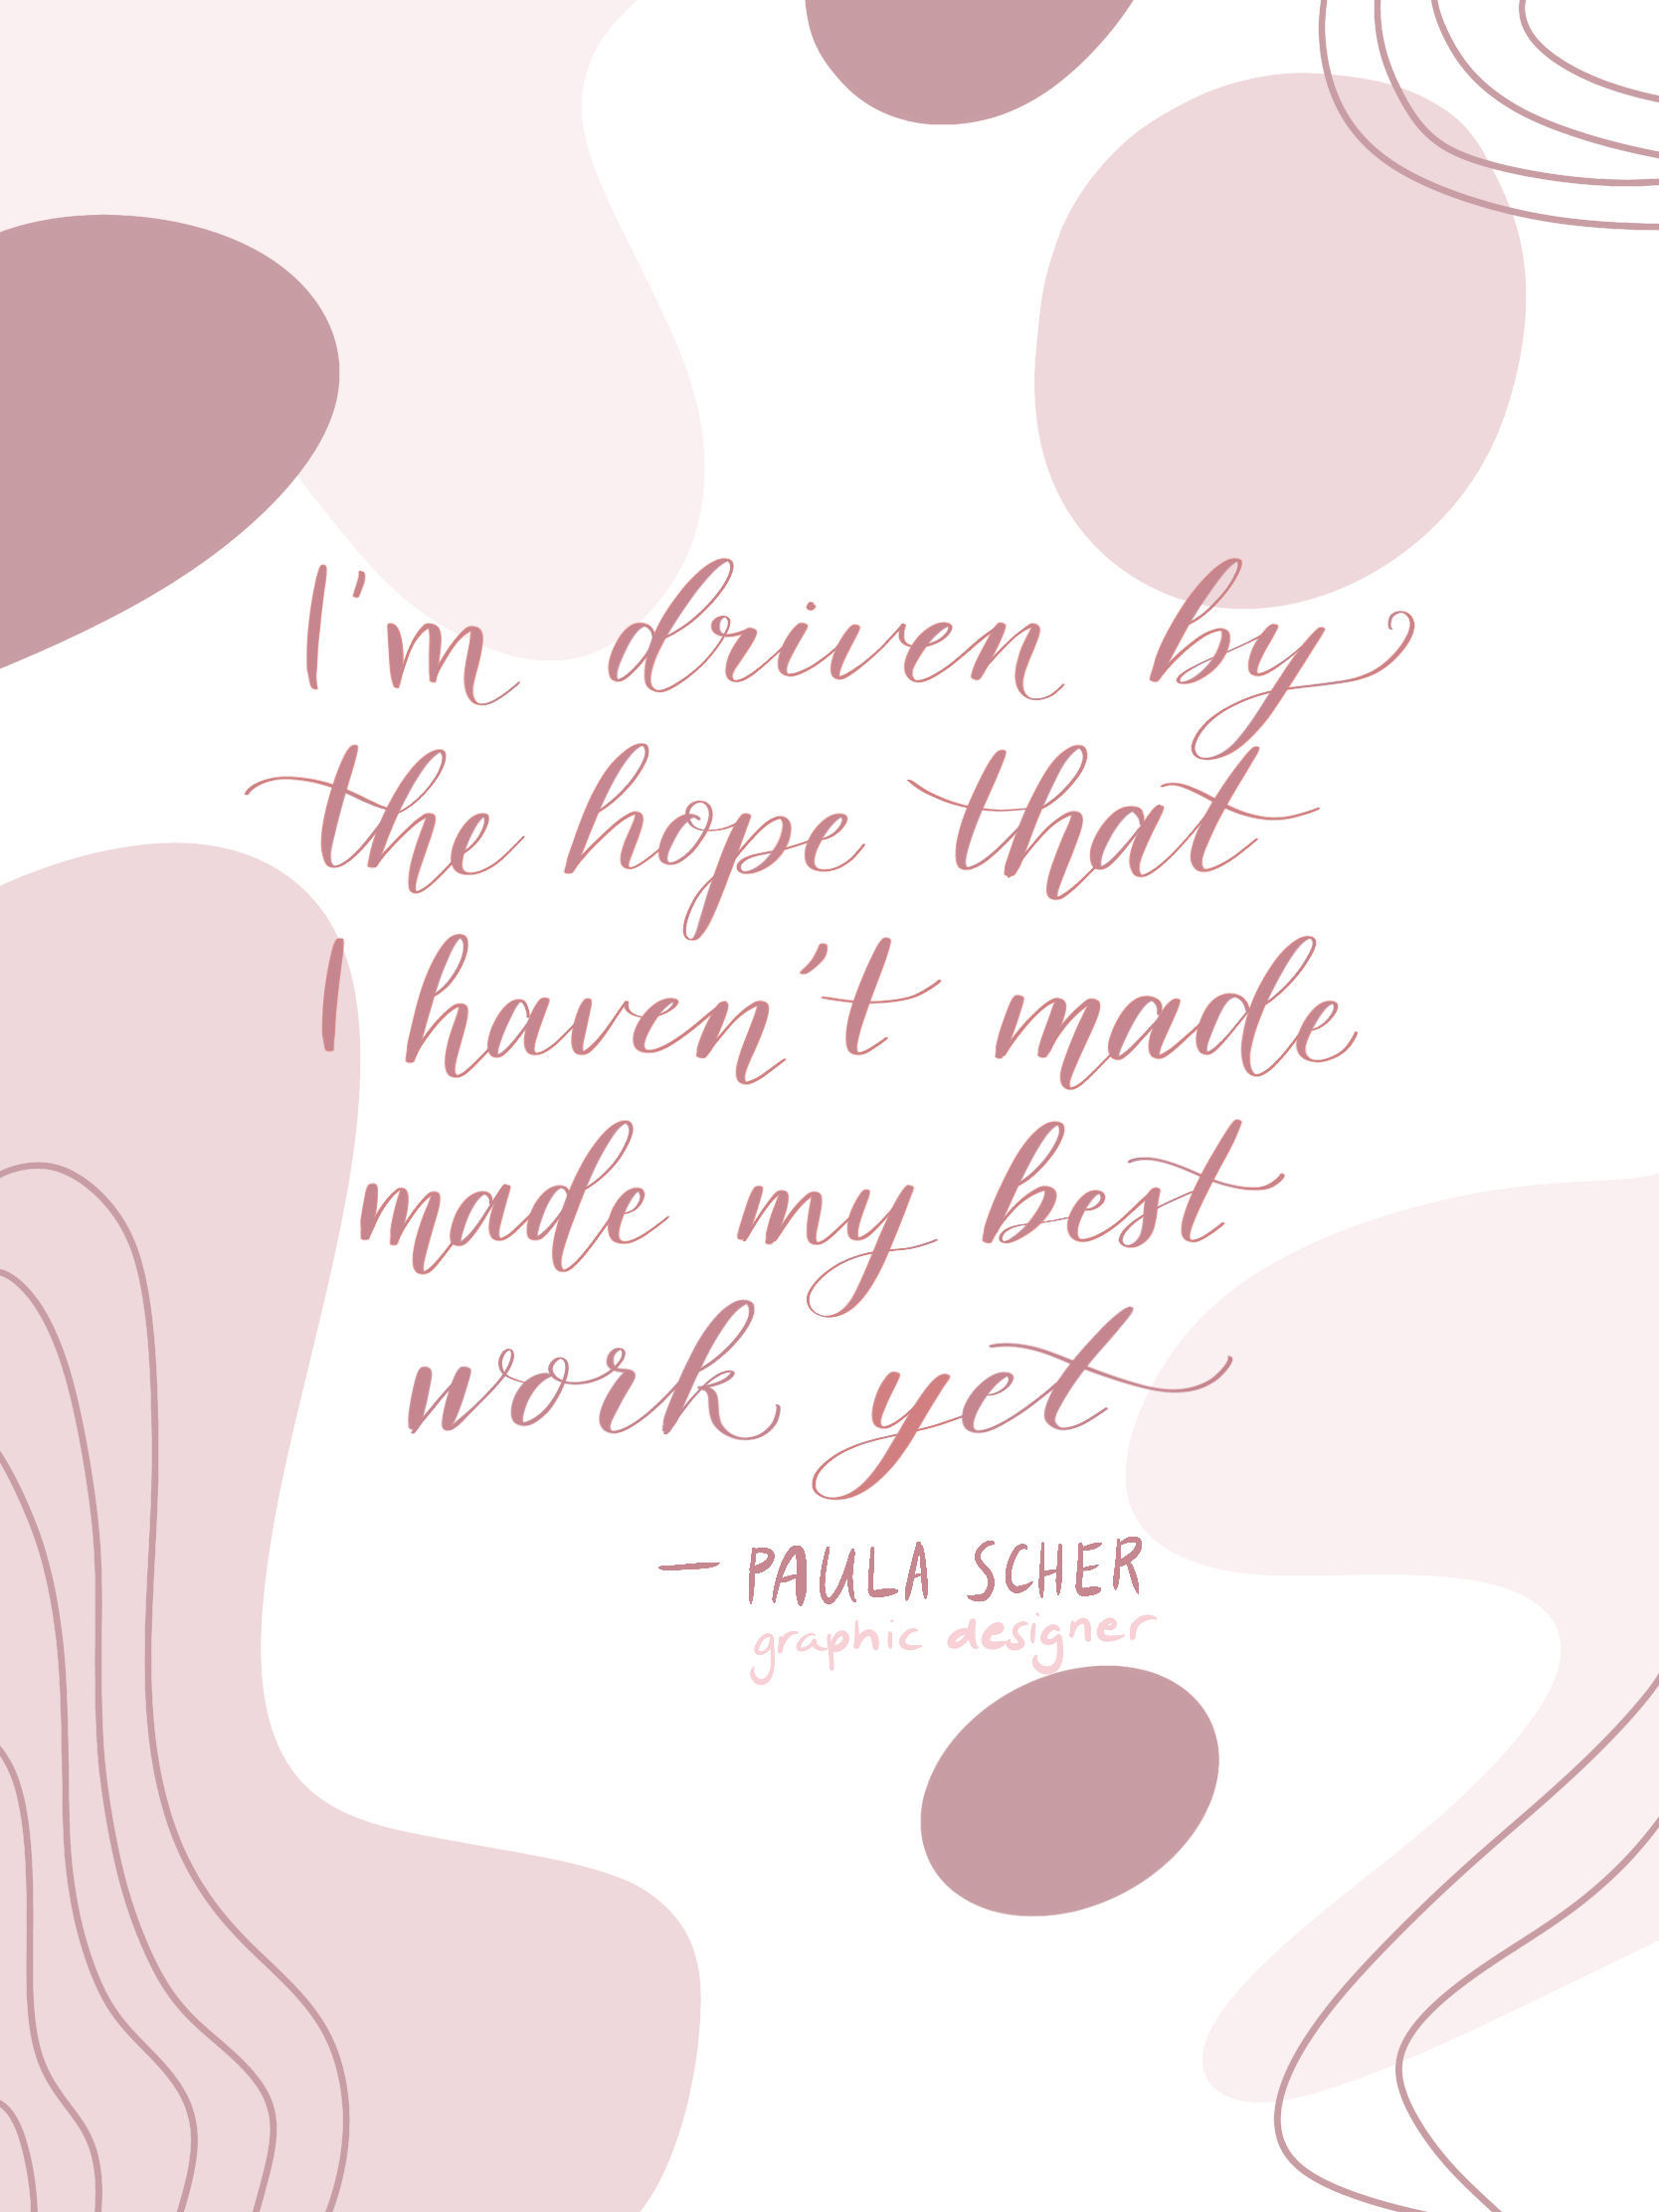 I'm driven by
the hope that
I haven't made
made my best
work yet
— PAULA SCHER
graphic designer